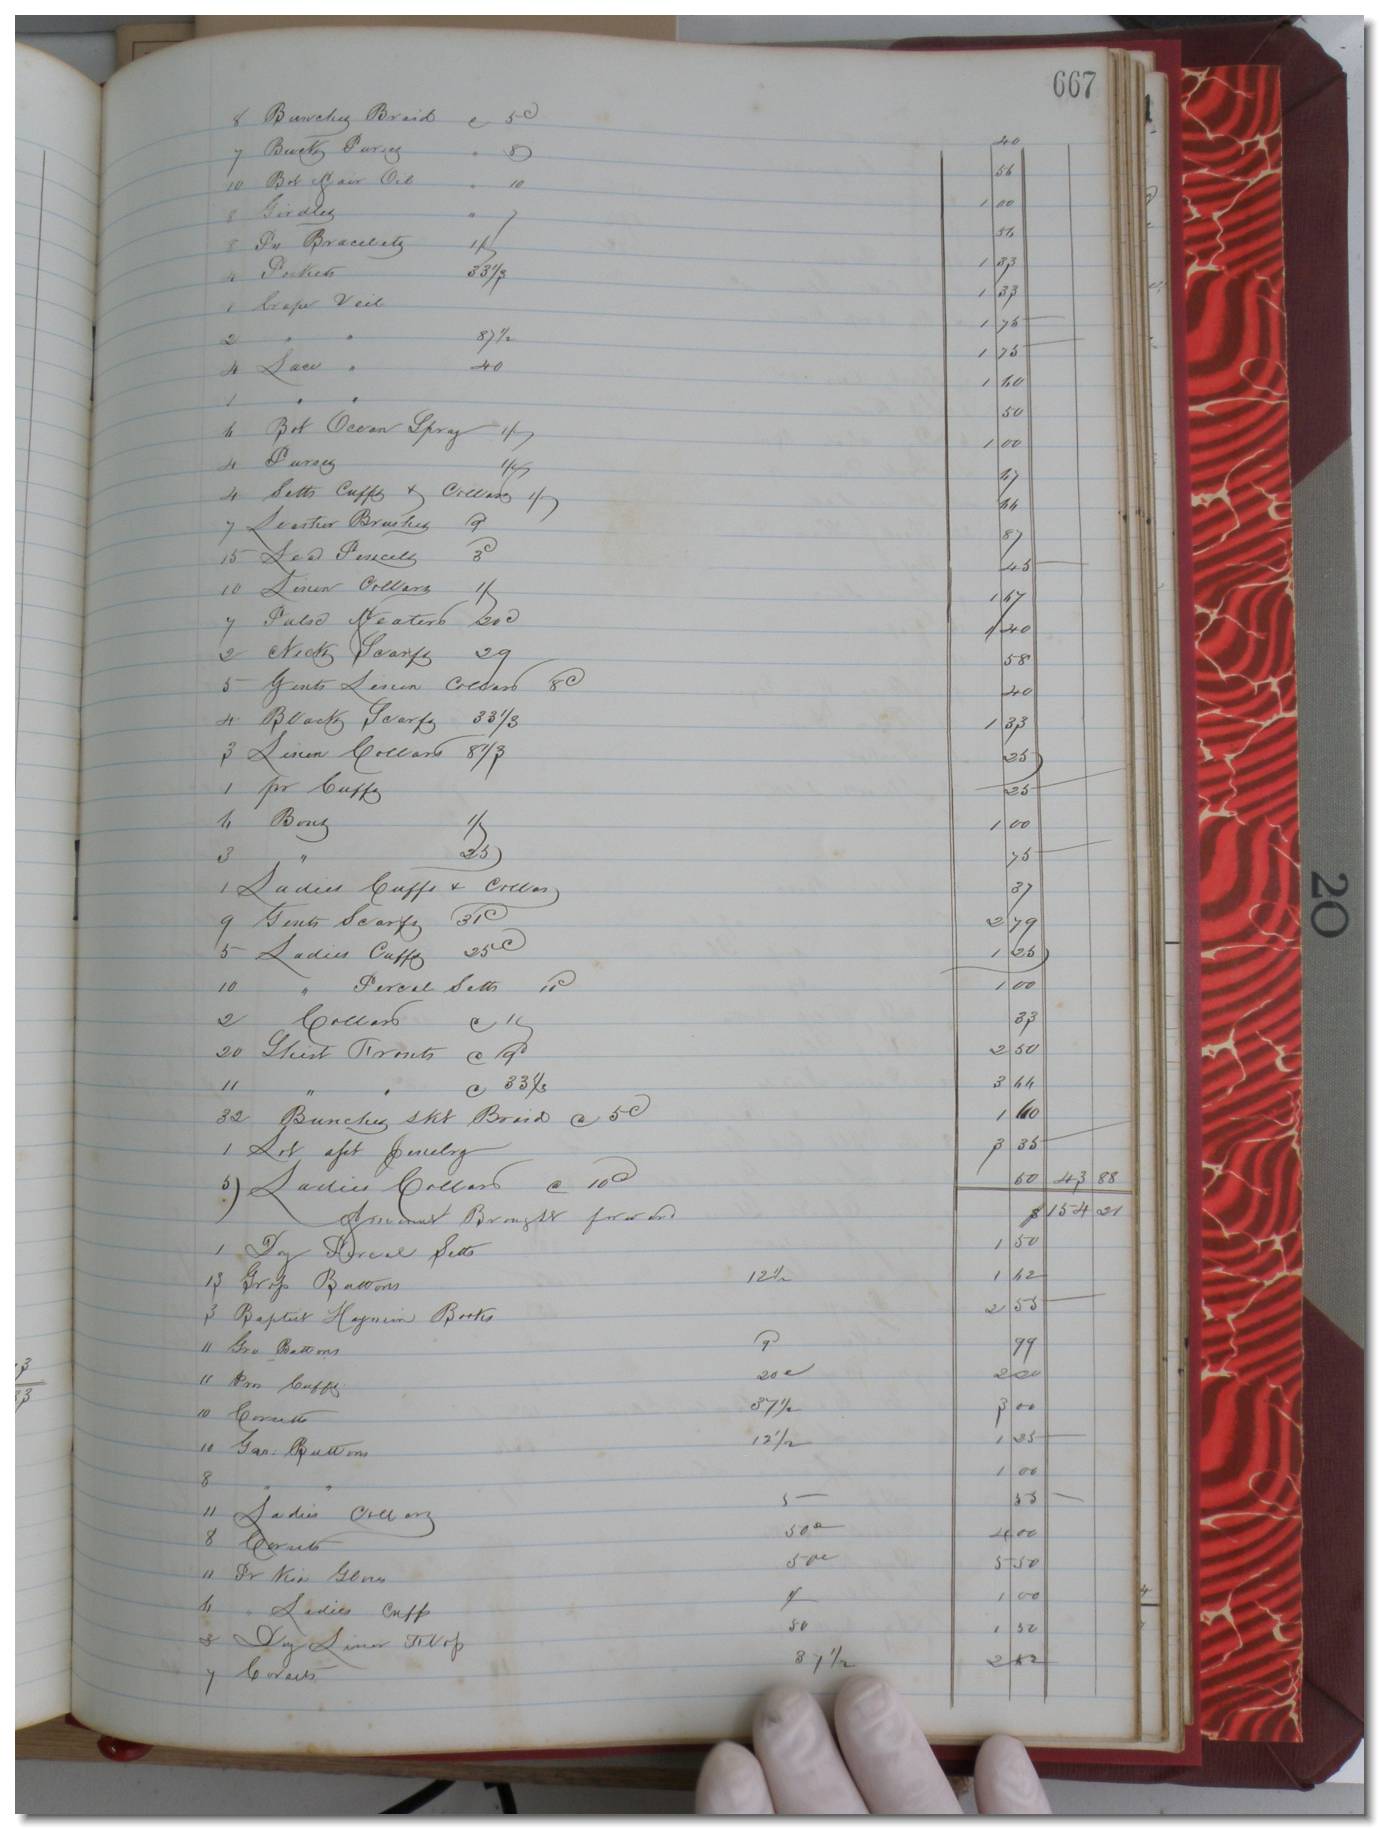 667
8 Bunches Braid c 5c 40
7 Backy Purses " 8 56
10 Bot Hair Oil " 10 1 00
8 Girdles " 7 56
8 Pr Bracelets 1/ 1 33
4 Pockets 33 1/3 1 33
1 Crape Veil 1 75
2 " " 87 1/2 1 75
4 Lace " 40 1 60
1 " " 50
6 Bot Ocean Spray 1/ 1 00
4 Purses 1/ 67
4 Setts Cuffs & Collars 1/ 64
7 Brushes 87
15 Lead Pencells 3c 45
10 Linen Collars 1/ 1 67
7 20c 1 40
2 Neck Scarfs 29 58
5 Gents Linen Collars 8c 40
4 Black Scarfs 33 1/3 1 33
3 Linen Collars 8 1/3 25
1 pr Cuffs 25
6 Bows 1/ 1 00
3 " 25 75
1 Ladies Cuffs & Collars 37
9 Gents Scarfs 31c 2 79
5 Ladies Cuffs 25c 1 25
10 " Percal Setts 1 00
2 Collars c 1/ 33
20 Shirt Fronts c 2 50
11 " " c 33 1/3 3 66
32 Bunches skt Braid c 5c 1 60
1 Lot asst Jewelry 3 35
5 Ladies Collars c 10c 50 43 88
Amount Brought forward 154 21
1 Doz Percal Setts 1 50
13 Gross Buttons 12 1/2 1 62
3 Baptist Hymn Books 2 55
11 Gro Buttons 9 99
11 Prs Cuffs 20c 2 20
10 Corsetts 37 1/2 3 00
10 Gro. Buttons 12 1/2 1 25
8 " " 1 00
11 Ladies Collars 5 55
8 Corsets 50c 4 00
11 Pr Kid Gloves 50c 5 50
6 " Ladies Cuffs 1/ 1 00
3 Doz Linen 50 1 50
7 Corsets 37 1/2 2 62
20